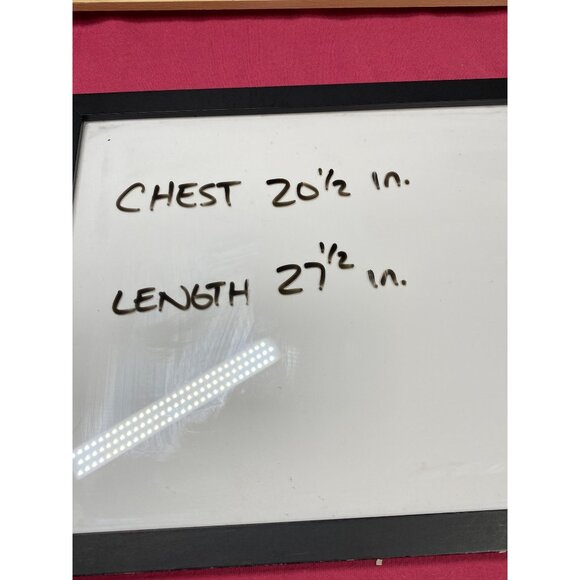 CHEST 20 1/2 in.
LENGTH 27 1/2 in.